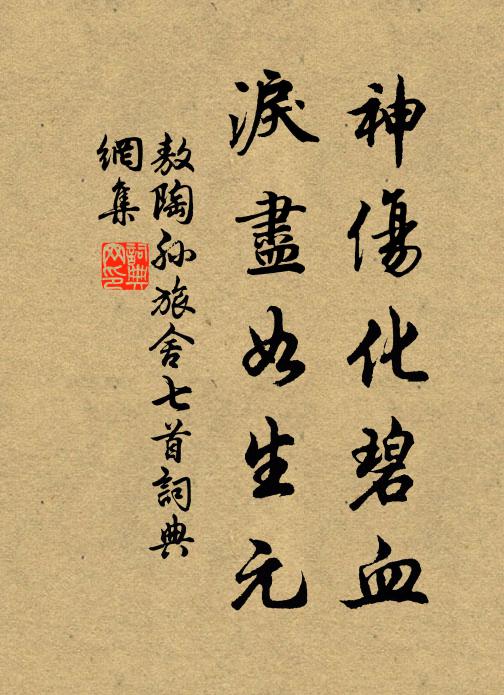 神傷化碧血
淚盡如生元
敖陶孫旅舍七首詞典
網集
詞典
网印